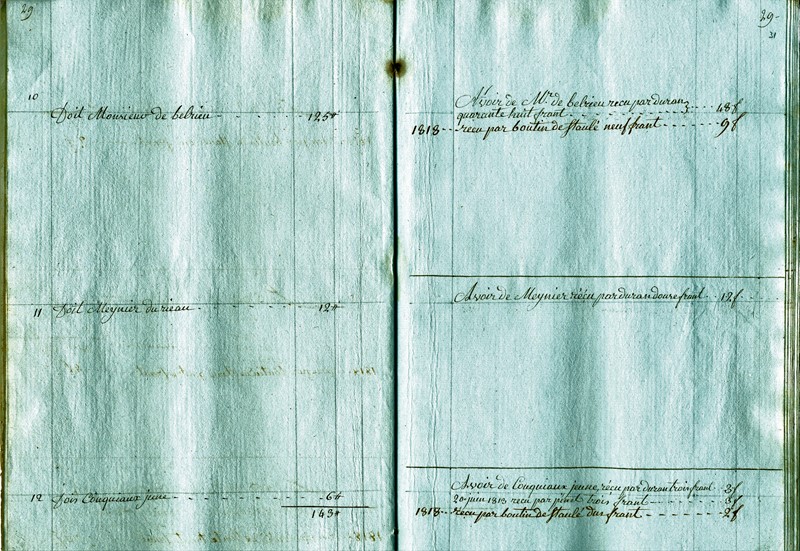 29
10 Doit Monsieur de belrieu 125#
11 Doit Meynier durieau 12#
12 Dois Couquiaux jeune 6#
143#
29
21
Avoir de Mr de belrieu recu par duran
quarante huit frant 48f
1818 recu par boutin de staulé neuf frant 9f
Avoir de Meynier récu par duran doure frant 12f
Avoir de Couquiaux jeune récu par duran trois frant 3f
20 juin 1813 recu par pinet trois frant 3f
1818 recu par boutin de staulé dus frant 2f